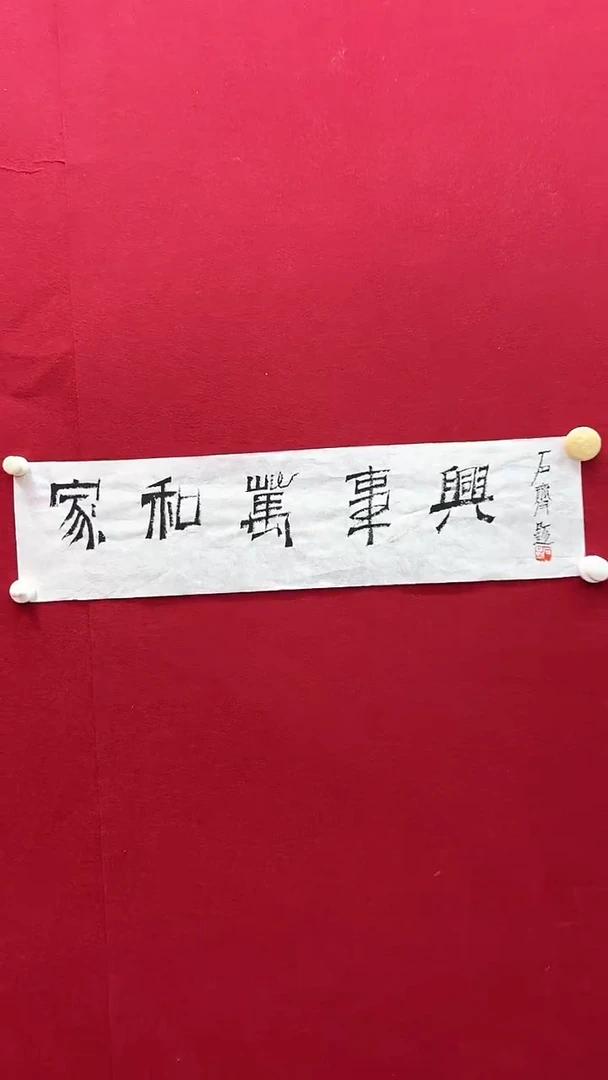 家和萬事興
石齊題